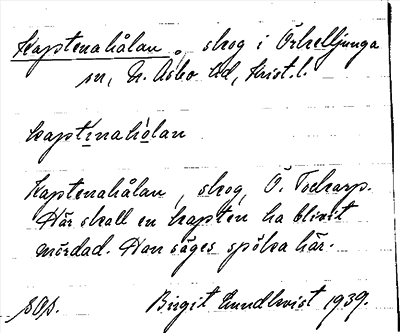 Kaptenahålan, skog i Örkelljunga
sn, N. Åsbo hd, Krist. l.
kaptinahòlan
Kaptenahålan, skog, Ö. Tockarp.
Här skall en kapten ha blivit
mördad. Han säges spöka här.
sops.
Birgit Lundkvist 1939.